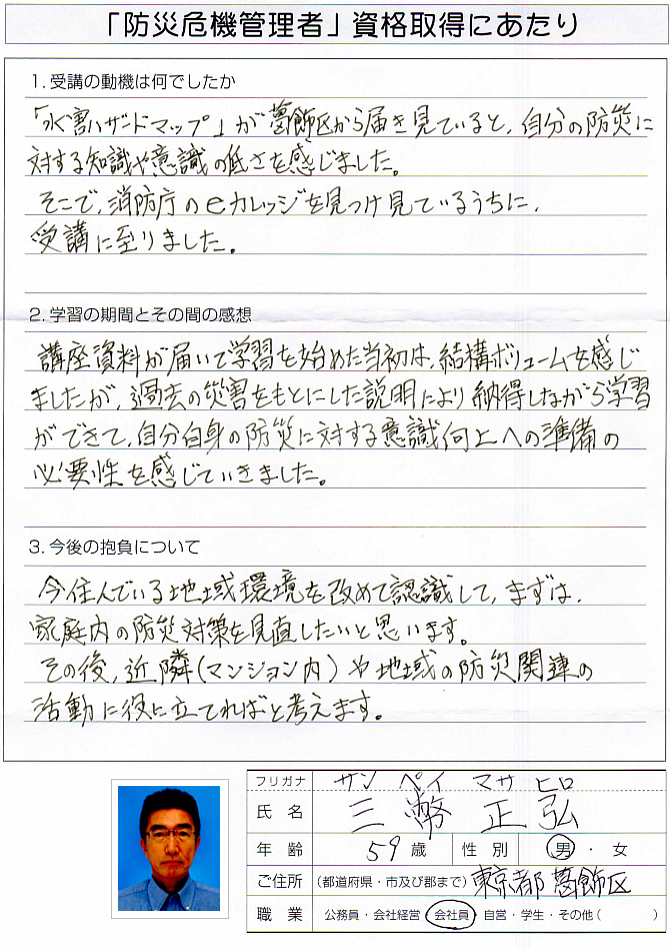 「防災危機管理者」資格取得にあたり
1. 受講の動機は何でしたか
「水害ハザードマップ」が葛飾区から届き見ていると、自分の防災に
対する知識や意識の低さを感じました。
そこで、消防庁のeカレッジを見つけ見ているうちに、
受講に至りました。
2. 学習の期間とその間の感想
講座資料が届いて学習を始めた当初は、結構ボリュームを感じ
ましたが、過去の災害をもとにした説明により納得しながら学習
ができて、自分自身の防災に対する意識向上への準備の
必要性を感じていきました。
3. 今後の抱負について
今住んでいる地域環境を改めて認識して、まずは、
家庭内の防災対策を見直したいと思います。
その後、近隣(マンション内)や地域の防災関連の
活動に役に立てればと考えます。
フリガナ サンペイ マサヒロ
氏 名 三幣 正弘
年 齢 59歳 性 別 男・女
ご住所 (都道府県・市及び郡まで) 東京都葛飾区
職 業 公務員・会社経営・会社員・自営・学生・その他( )